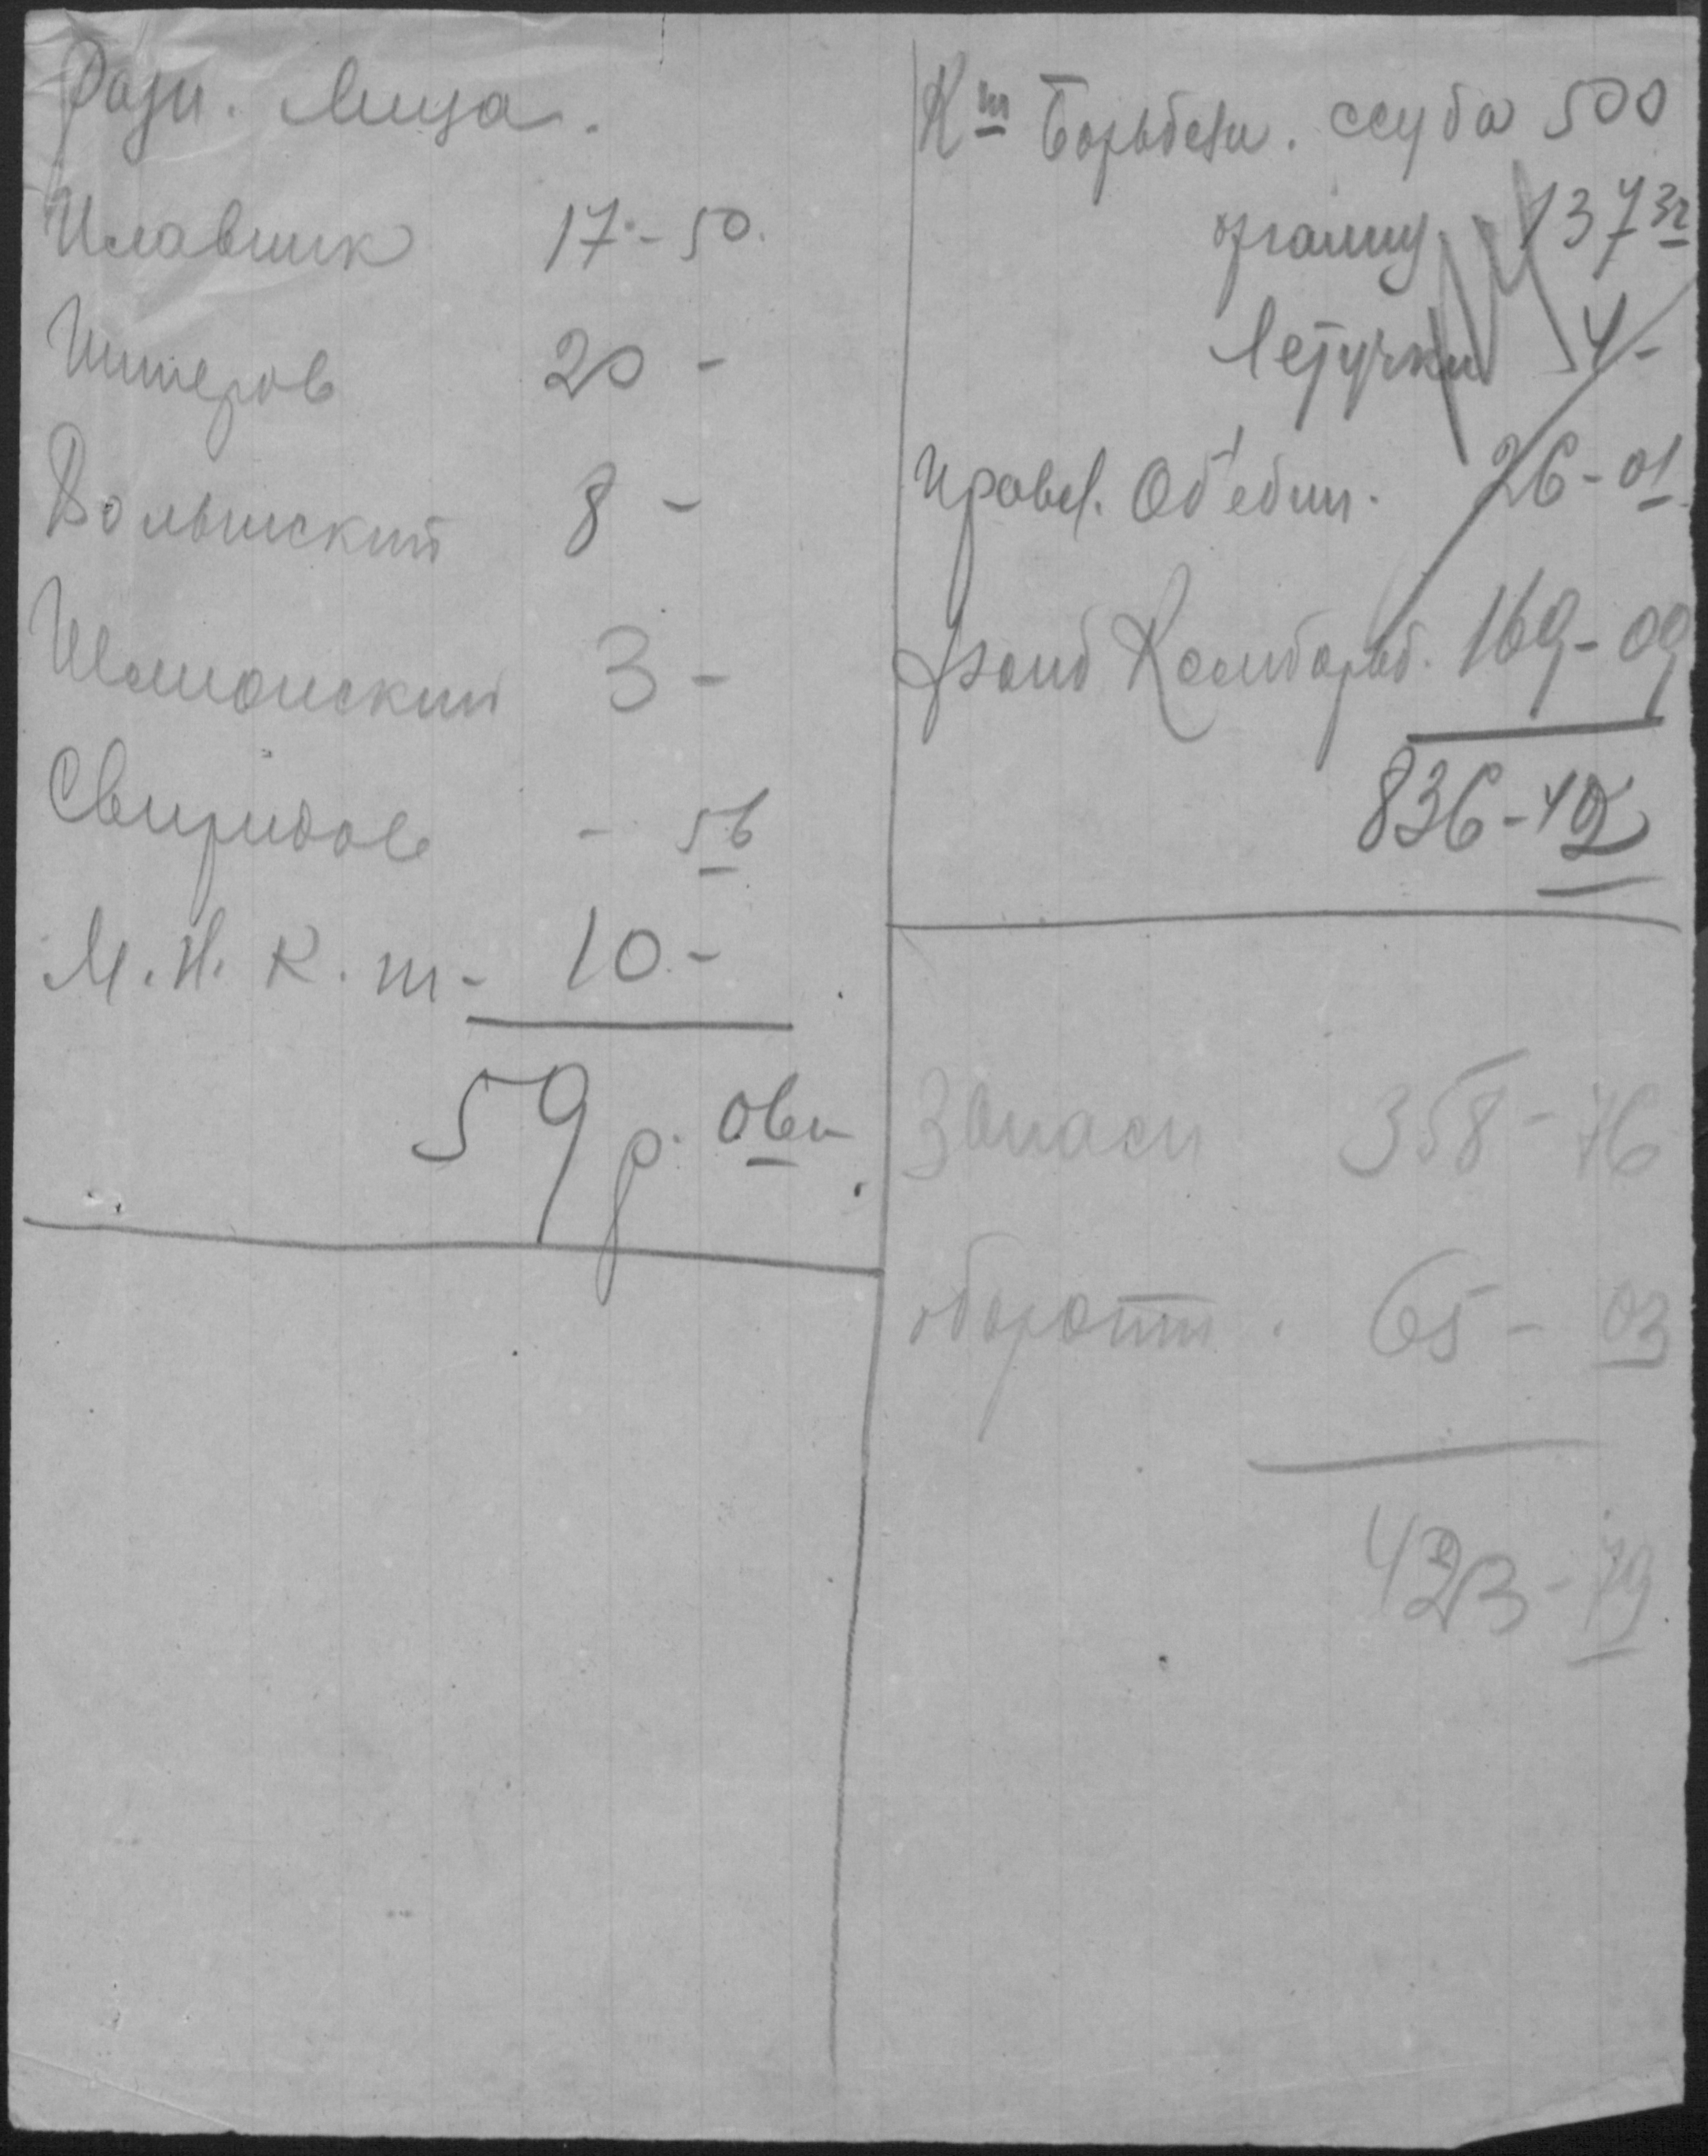 Разн. Лица.
Илавник 17 - 50.
Шитеров 20 -
Волынский 8 -
Шклионский 3 -
Свиридов - 56
М. Н. К. т - 10 -
59 р. 06 к
Кт Борьбези. ссуда 500
137 32
Летучки 4 -
Правл. Об'един. 26 - 01
Фонд Комборьб. 169 - 09
836 - 42
Запасн 358 - 76
оборотн. 65 - 03
423 - 79